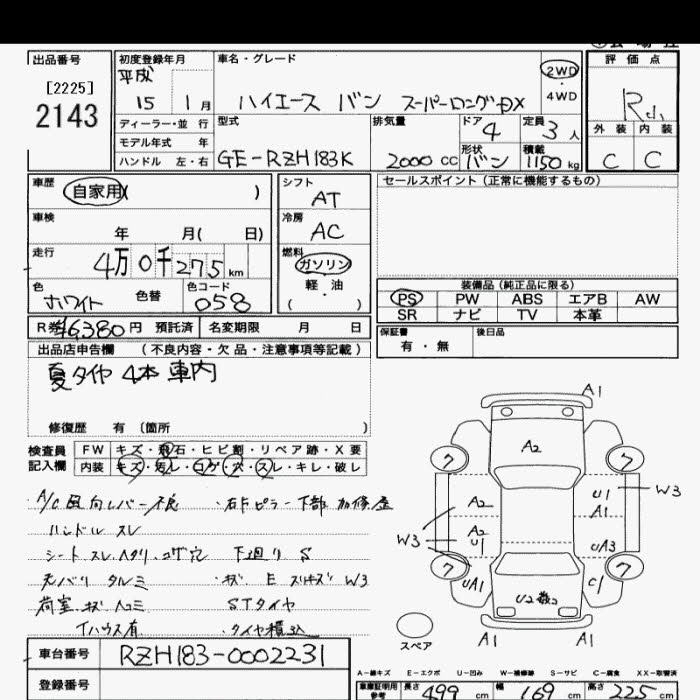 出品番号
[2225]
2143
初度登録年月
平成
15 1月
車名・グレード
ハイエース バン スーパーロングDX
2WD
・
4WD
評価点
R小
外装 内装
C C
ディーラー・並 行
モデル年式 年
ハンドル 左・右
型式
GE-RZH183K
排気量
2000 CC
ドア
4
定員
3 人
形状
バン
積載
1150 kg
車歴
自家用( )
車検
年 月( 日)
走行
4万0千275 km
色
ホワイト
色替
色コード
058
シフト
AT
冷房
AC
燃料
ガソリン
軽・油
( )
セールスポイント(正常に機能するもの)
装備品(純正品に限る)
PS PW ABS エアB AW
SR ナビ TV 本革
R券 ¥6,380 円 預託済 名変期限 月 日
保証書
有・無
後日品
出品店申告欄 (不良内容・欠品・注意事項等記載)
夏タイヤ 4本 車内
修復歴 有 (箇所 )
検査員
記入欄
FW キズ・飛石・ヒビ割・リペア跡・X要
内装 キズ・汚レ・コゲ・穴・スレ・キレ・破レ
・A/C風向レバー不良
・右Fピラー下部 加修歴
ハンドル スレ
シート スレ ヘタリ コゲ穴
下廻り S
天バリ タルミ
荷室 キズ ヘコミ
STタイヤ
・タイヤ積込
A1
A2
7 7
A2
A2
U1
W3
U1
A1
W3
UA3
7 7
UA1
C1
U2数コ
A1 A1
スペア
車台番号
RZH183-0002231
登録番号
A-線キズ E-エクボ U-凹ミ W-補修跡 S-サビ C-腐食 XX-取替済
車庫証明用
参考
長さ 499 cm 幅 169 cm 高さ 225 cm